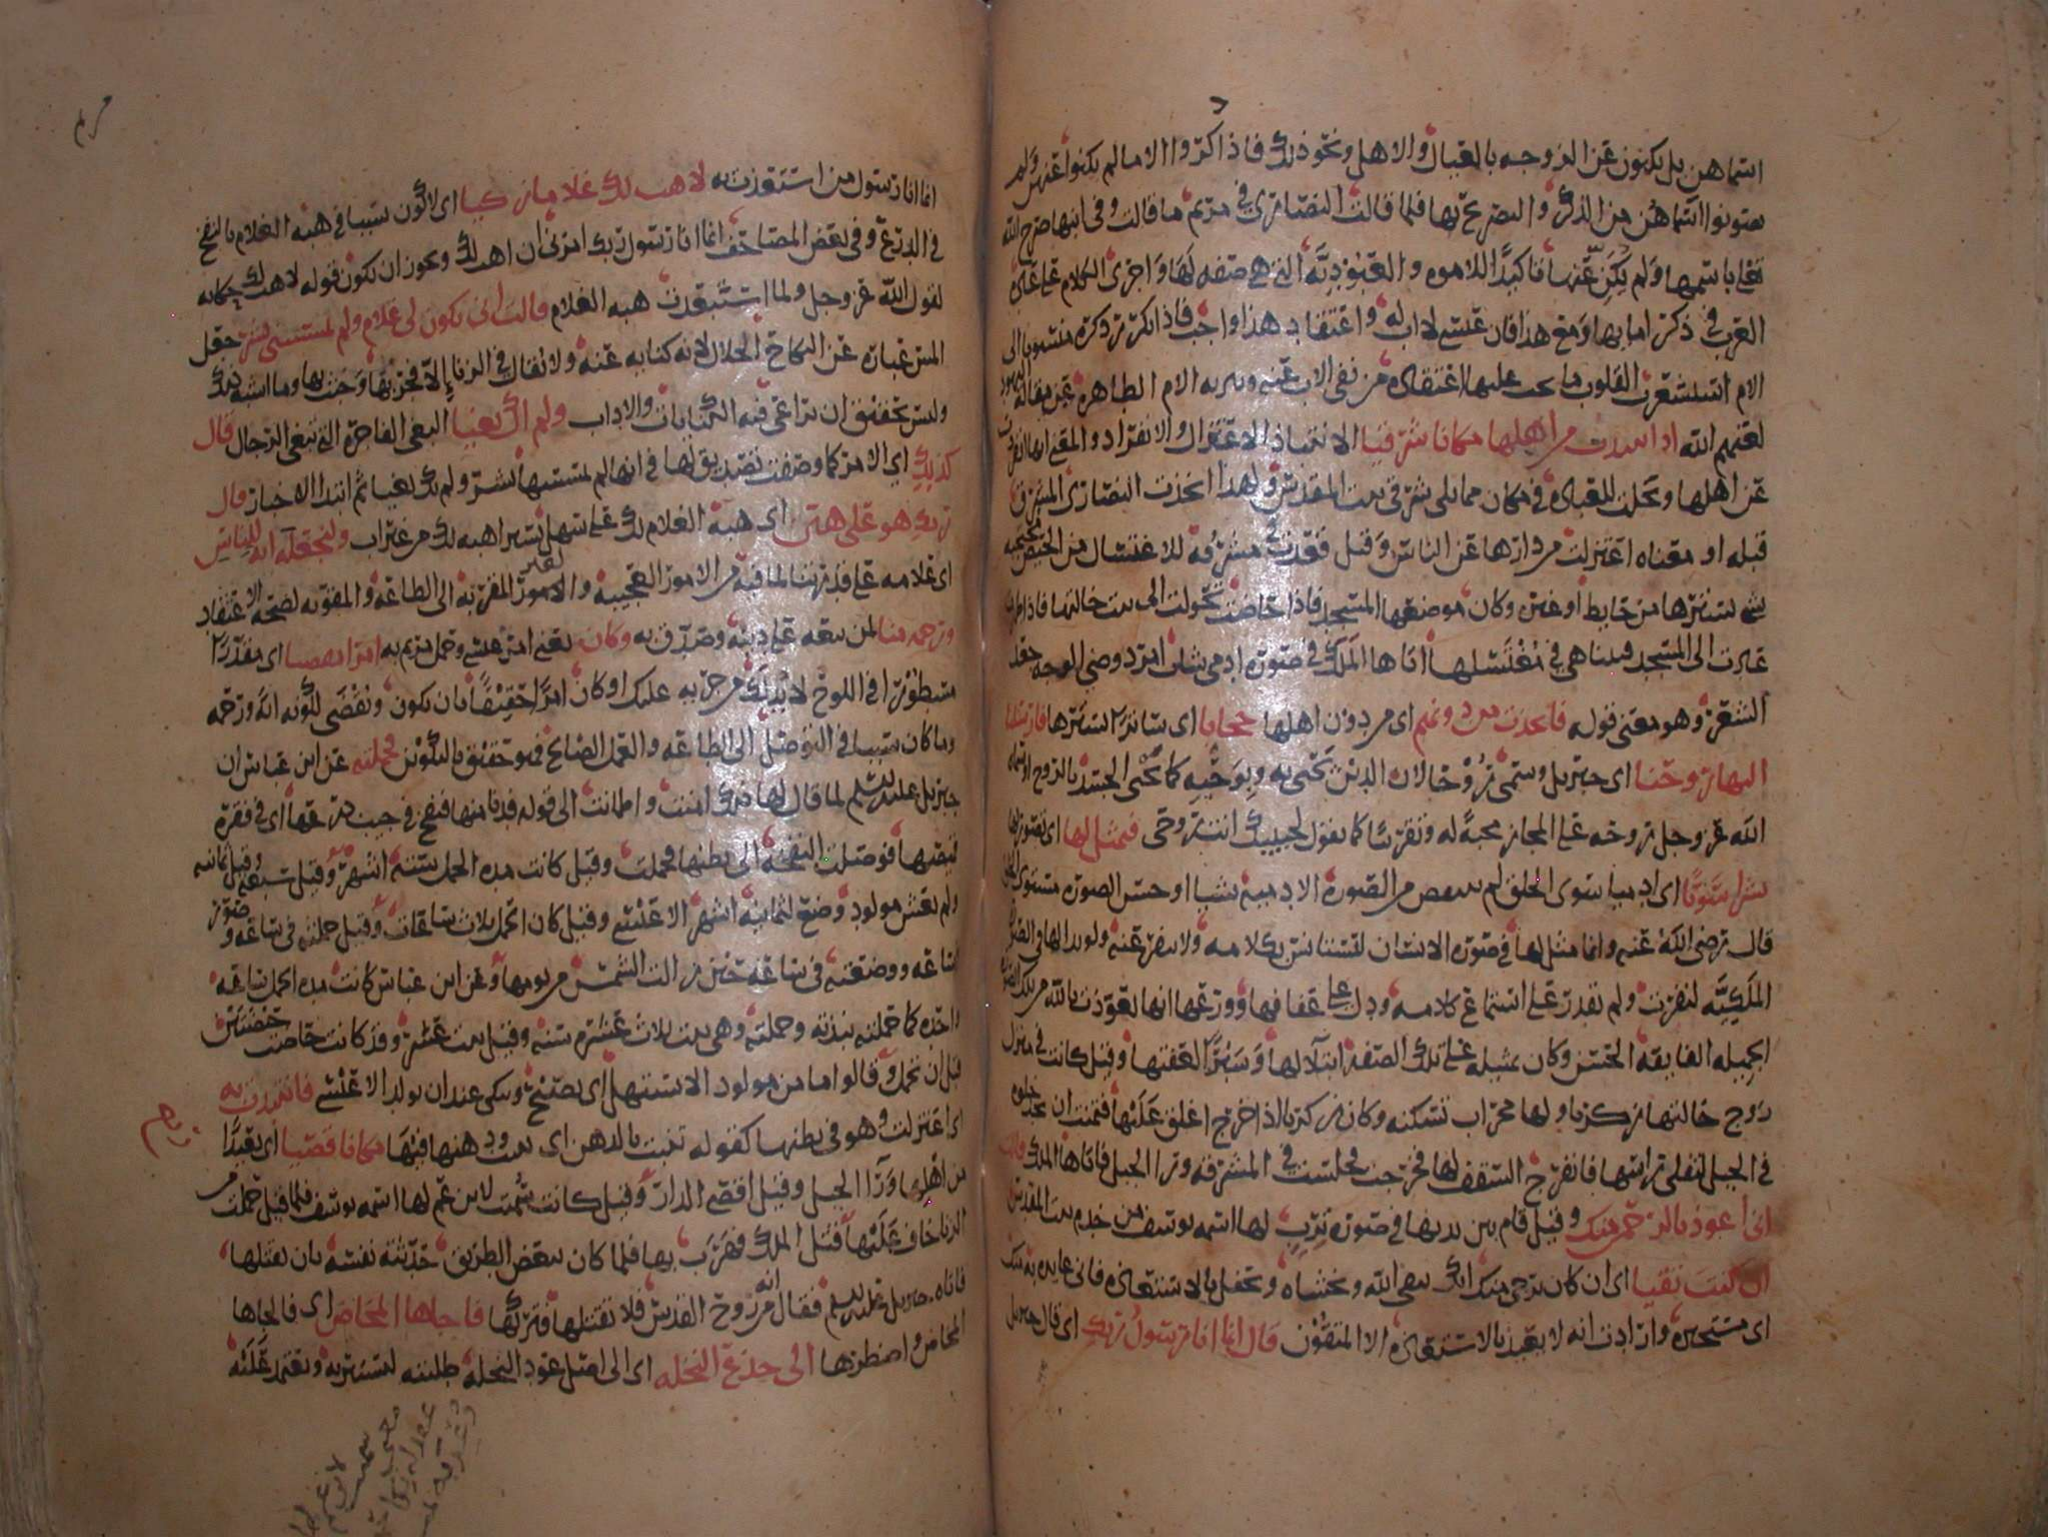 اسماهن بل يكنون عن الزوجه بالعيال والاهل ونحو ذلك فاذا ذكروا الاما لم يكنوا عنهن ولم
يصونوا اسماهن من الذكر والتصريح بها فلما قالت النصارى في مريم ما قالت وفي ابنها صرح الله
تعلى باسمها ولم يكن عنها تاكيدا للاموه والعبوديه التي هي صفه لها واجرى الكلام على عاده
العرب في ذكر امايها ومع هذا فان عيسى لا اب له واعتقاد هذا واجب فاذا تكرر ذكره منسوبا الى
الام استشعرت القلوب ما يجب عليها اعتقاده من نفي الاب عنه وتنزيه الام الطاهره عن مقاله اليهود
لعنهم الله اذ انتبذت من اهلها مكانا شرقيا الانتباذ الاعتزال والانفراد والمعنى انها انفردت
عن اهلها وتخلت للعباده في مكان مما يلي شرقي بيت المقدس ولهذا اتخذت النصارى المشرق
قبله او معناه اعتزلت من دارها عن الناس وقيل قعدت في مشرقه للاغتسال من الحيض محتجبه
بشي يسترها من حايط او غيره وكان موضعها المسجد فاذا حاضت تحولت الى بيت خالتها فاذا طهرت
عادت الى المسجد فبينا هي في مغتسلها اتاها الملك في صوره ادمي شاب امرد وضي الوجه جعد
الشعر وهو معنى قوله فاتخذت من دونهم اي من دون اهلها حجابا اي ساترا يسترها فارسلنا
اليها روحنا اي جبريل وسمي روحا لان الدين يحيى به وبوحيه كما يحيى الجسد بالروح او سماه
الله عز وجل روحه على المجاز محبة له وتقريبا كما تقول لحبيبك انت روحي فتمثل لها اي تصور لها
بشرا سويا اي ادميا سوي الخلق لم ينقص من الصوره الادميه شيا او حسن الصوره مستوي الخلق
قال رضي الله عنه وانما مثل لها في صوره الانسان لتستانس بكلامه ولا تنفر عنه ولو بدا لها في الصوره
الملكيه لنفرت ولم تقدر على استماع كلامه ودل على عفافها وورعها انها تعوذت بالله من تلك الصوره
الجميله الفايقه الحسن وكان تمثيله على تلك الصفه ابتلا لها وسبرا لعفتها وقيل كانت في منزل
زوج خالتها زكريا ولها محراب تسكنه وكان زكريا اذا خرج اغلق عليها فتمنت ان تجد خلوه
في الجبل لتفلي راسها فانفرج السقف لها فخرجت فجلست في المشرقه ورا الجبل فاتاها الملك قالت
اني اعوذ بالرحمن منك وقيل قام بين يديها في صوره ترب لها اسمه يوسف من خدم بيت المقدس
ان كنت تقيا اي ان كان يرجى منك انك تتقي الله وتخشاه وتحفل بالاستعاذه فاني عايذه به منك
اي مستجيره وارادت انه لا يعتد بالاستعاذه الا المتقون قال انما انا رسول ربك اي قال جبريل
مريم
انما انا رسول من استعذت به لاهب لك غلاما زكيا اي لاكون سببا في هبه الغلام بالنفخ
في الدرع وفي بعض المصاحف انما انا رسول ربك امرني ان اهب لك ويجوز ان يكون قوله لاهب لك حكايه
لقول الله عز وجل ولما استبعدت هبه الغلام قالت انى يكون لي غلام ولم يمسسني بشر جعل
المس عباره عن النكاح الحلال لانه كنايه عنه ولا يقال في الزنا الا فجر بها وخبث بها وما اشبه ذلك
وليس بحقيق ان تراعى فيه الكنايات والاداب ولم اك بغيا البغي الفاجره التي تبغي الرجال قال
كذلك اي الامر كما وصفت تصديق لها في انها لم يمسسها بشر ولم تك بغيا ثم ابتدا الاخبار قال
ربك هو علي هين اي هبه الغلام لك علي سهل يسير اهبه لك من غير اب ولنجعله ايه للناس
اي علامه على قدرتنا لما فيه من الامور العجيبه والامور المقربه الى الطاعه والمقويه لصحه الاعتقاد
ورحمه منا لمن تبعه على دينه وصدق به وكان يعني امر عيسى وحمل مريم به امرا مقضيا اي مقدرا
مسطورا في اللوح لا بد لك من جريه عليك او كان امرا حقيقا بان يكون ونقضي لكونه ايه ورحمه
وما كان سببا في التوصل الى الطاعه والعمل الصالح فهو حقيق بالتكوين فحملته عن ابن عباس ان
جبريل عليه السلم لما قال لها ذلك امنت واطمانت الى قوله فدنا منها فنفخ في جيب درعها اي في فقره
قميصها فوصلت النفخه الى بطنها فحملت وقيل كانت مده الحمل سته اشهر وقيل سبعه وقيل ثمانيه
ولم يعش مولود وضع لثمانيه اشهر الا عيسى وقيل كان الحمل ثلاث ساعات وقيل حملته في ساعه وصور
في ساعه ووضعته في ساعه حين زالت الشمس من يومها وعن ابن عباس كانت مده الحمل ساعه
واحده كما حملته نبذته وحملته وهي بنت ثلاث عشره سنه وقيل بنت عشر وقد كانت حاضت حيضتين
قبل ان تحمل وقالوا ما من مولود الا يستهل اي يصيح ويبكي عند ان يولد الا عيسى فانتبذت به
اي اعتزلت وهو في بطنها كقوله تنبت بالدهن اي تنبت ودهنها فيها مكانا قصيا اي بعيدا
من اهلها ورا الجبل وقيل اقصى الدار وقيل كانت سميت لابن عم لها اسمه يوسف فلما قيل حملت من
الزنا خاف عليها قتل الملك فهرب بها فلما كان ببعض الطريق حدثته نفسه بان يقتلها
فاتاه جبريل عليه السلم فقال انه من روح القدس فلا تقتلها فتركها فاجاها المخاض اي فالجاها
المخاض واضطرها الى جذع النخله اي الى اصل عود النخله طلبته لتستتر به وتعتمد عليه